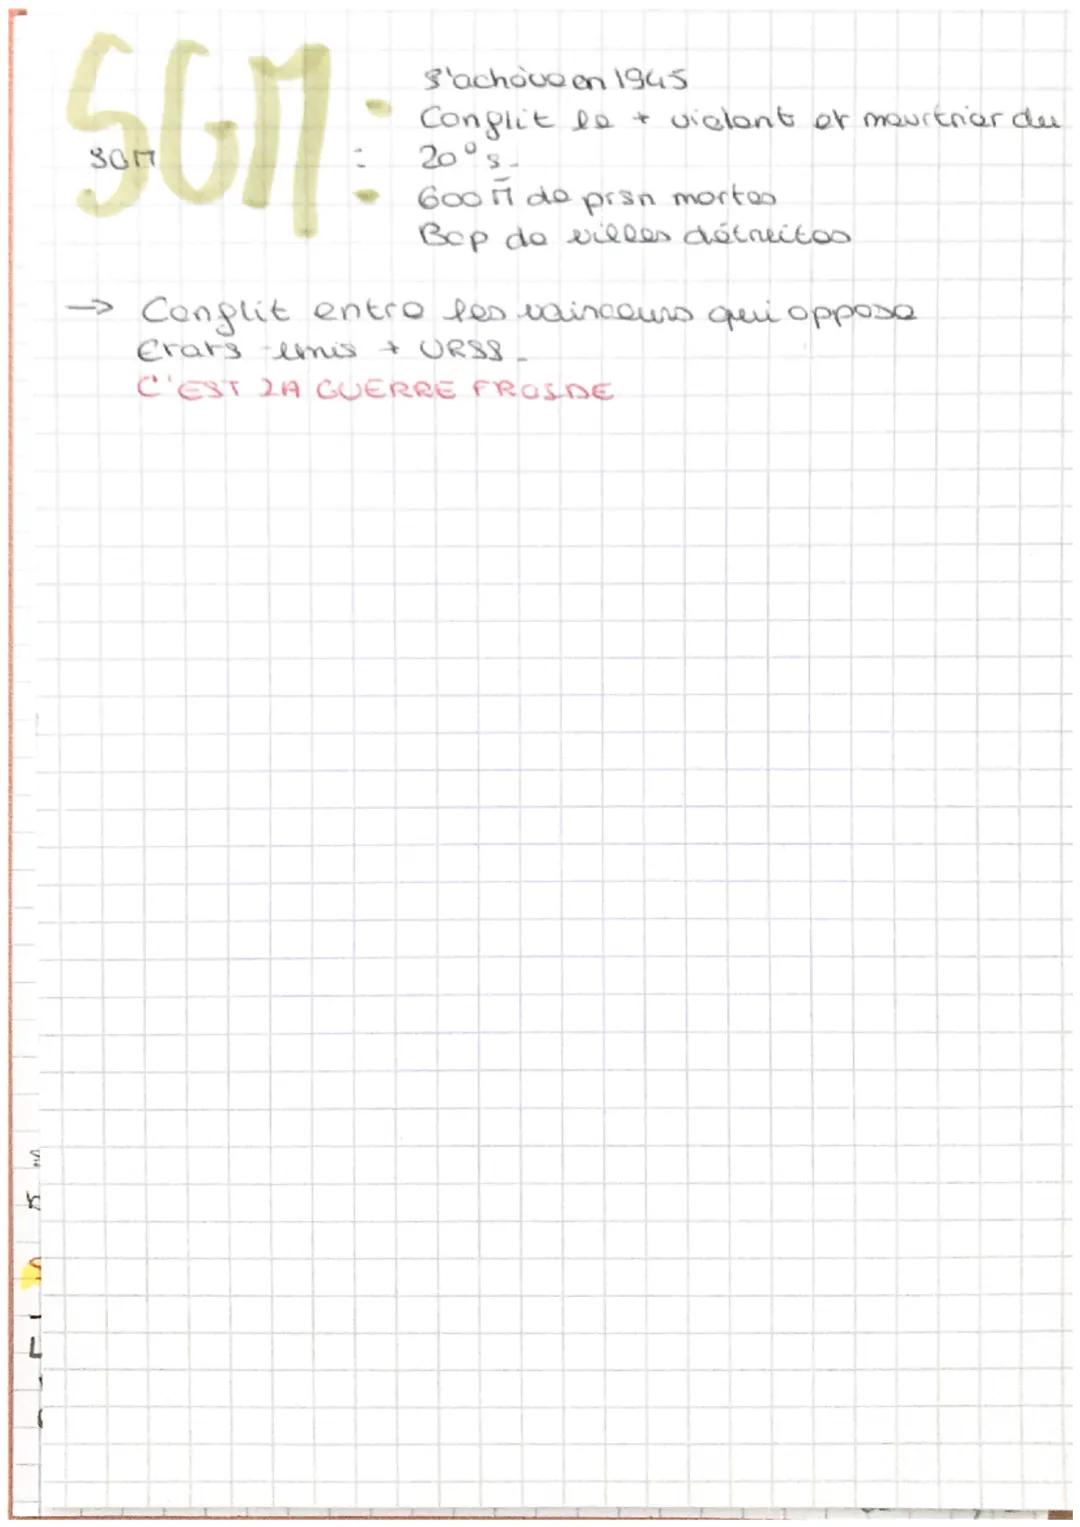 SGM :
SGM :
s'achève en 1945
Conflit le + violent et meurtrier du
20° s.
600 M de prsn mortes
Bcp de villes détruites
→ Conflit entre les vainceurs qui oppose
Etats-unis + URSS.
C'EST LA GUERRE FROIDE